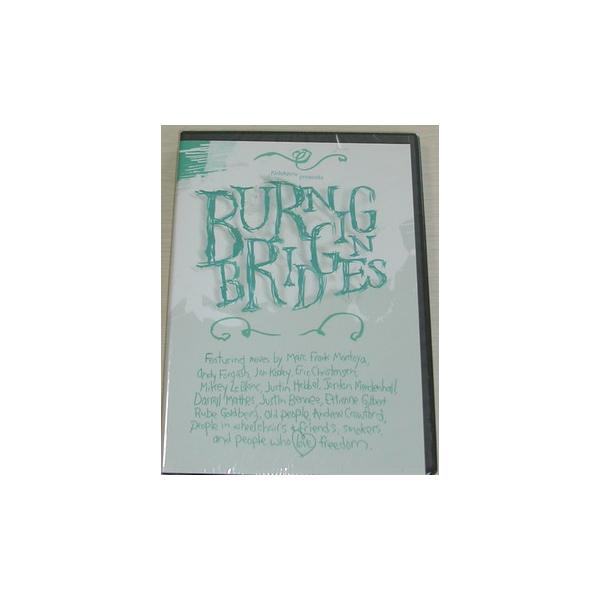 Kidsknow presents
BURNING
BRIDGES
Featuring moves by Marc Frank Montoya,
Andy Forgash, Jon Kooley, Eric Christensen,
Mikey LeBlanc, Justin Hebbel, Jordan Mendenhall
Darrell Mathes, Justin Bennee, Etienne Gilbert
Rube Goldberg, old people, Andrew Crawford,
people in wheelchairs & friends, smokers,
and people who love freedom.